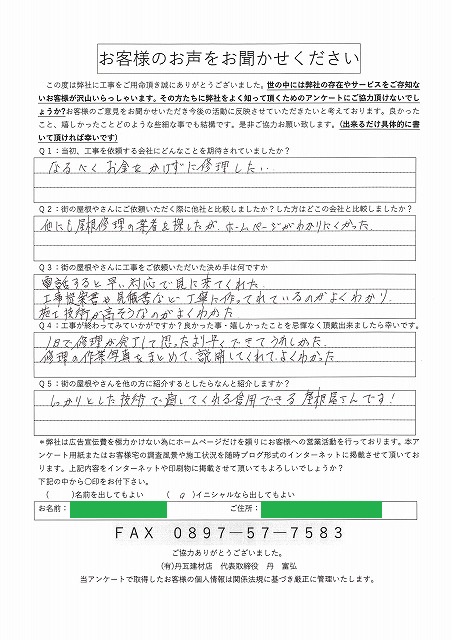 お客様のお声をお聞かせください
この度は弊社に工事をご用命頂き誠にありがとうございました。世の中には弊社の存在やサービスをご存知な
いお客様が沢山いらっしゃいます。その方たちに弊社をよく知って頂くためのアンケートにご協力頂けないでし
ょうか?お客様のご意見をお聞かせいただき今後の活動に反映させていただきたいと考えております。良かった
こと、嬉しかったことどのような些細な事でも結構です。是非ご協力お願い致します。(出来るだけ具体的に書
いて頂ければ幸いです)
Q1:当初、工事を依頼する会社にどんなことを期待されていましたか?
なるべくお金をかけずに修理したい
Q2:街の屋根やさんにご依頼いただく際に他社と比較しましたか?した方はどこの会社と比較しましたか?
他にも屋根修理の業者を探したが、ホームページがわかりにくかった。
Q3:街の屋根やさんに工事をご依頼いただいた決め手は何ですか
電話すると早い対応で見に来てくれた
工事提案書や見積書など丁寧に作ってれているのがよくわかり、
施工技術が高そうなのがよくわかた
Q4:工事が終わってみていかがですか?良かった事・嬉しかったことを忌憚なく頂戴出来ましたら幸いです。
1日で修理が完了して思ったより早くできてうれしかた
修理の作業写真をまとめて、説明してくれて、よくわかった
Q5:街の屋根やさんを他の方に紹介するとしたらなんと紹介しますか?
しっかりとした技術で直してくれる信用できる屋根屋さんです!
*弊社は広告宣伝費を極力かけない為にホームページだけを頼りにお客様への営業活動を行っております。本ア
ンケート用紙またはお客様宅の調査風景や施工状況を随時ブログ形式のインターネットに掲載させて頂いてお
ります。上記内容をインターネットや印刷物に掲載させて頂いてもよろしいでしょうか?
下記の中から○印をお付下さい。
( )名前を出してもよい ( ○ )イニシャルなら出してもよい
お名前: ご住所:
FAX 0897-57-7583
ご協力ありがとうございました。
(有)丹瓦建材店 代表取締役 丹 富弘
当アンケートで取得したお客様の個人情報は関係法規に基づき厳正に管理いたします。